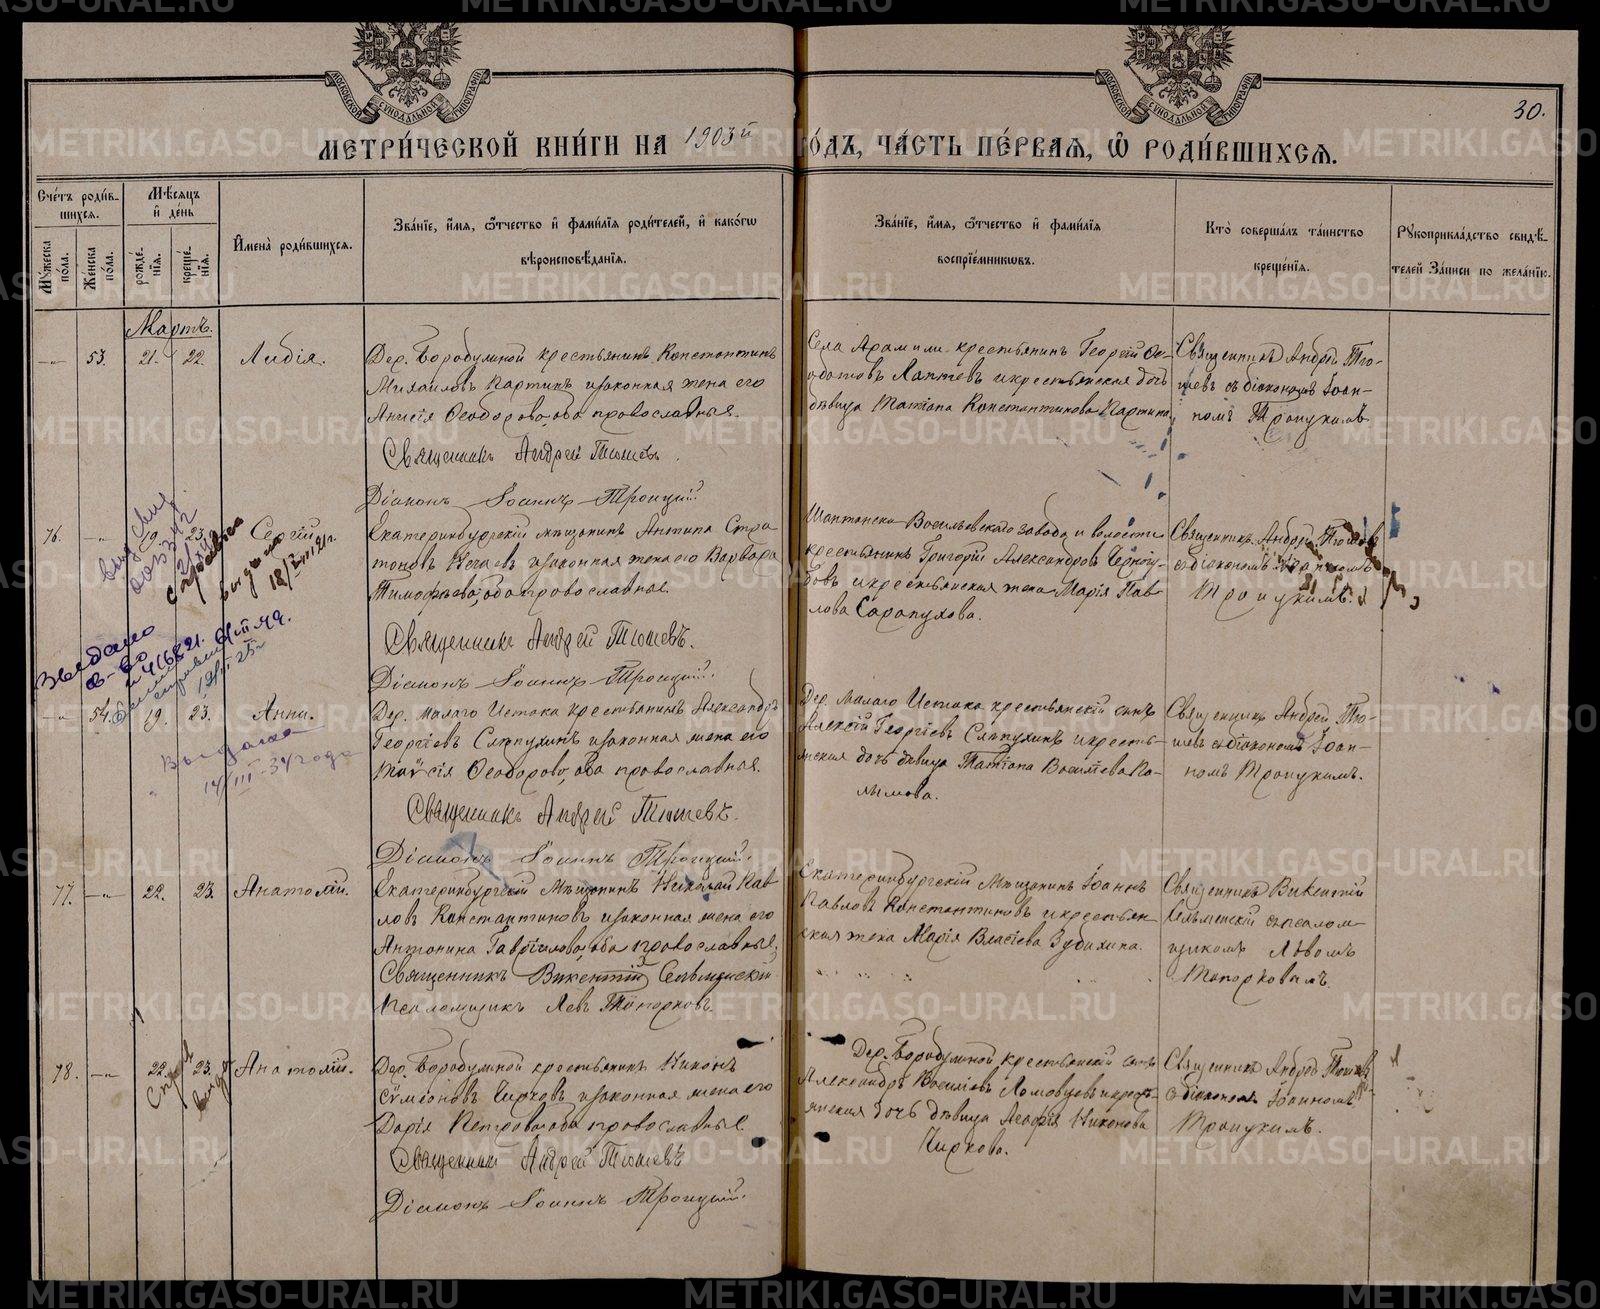 МЕТРИ́ЧЕСКОЙ КНИ́ГИ НА 1903й ГО́ДЪ, ЧА́СТЬ ПЕ́РВАЯ, Ѡ РОДИ́ВШИХСЯ.
30.
МОСКОВСКОЙ СѴНОДАЛЬНОЙ ТИПОГРАФІИ
МОСКОВСКОЙ СѴНОДАЛЬНОЙ ТИПОГРАФІИ
Сче́тъ роди́в-
шихся.
Му́жеска
пола.
Же́нска
по́ла.
Мѣ́сяцъ
и҆ де́нь
рожде-
нія.
креще-
нія.
И҆мена̀ роди́вшихся.
Зва́нїе, и҆́мя, ѻ҆́тчество и҆ фами́лїя роди́телей, и҆ како́гѡ
вѣроисповѣ́данїя.
Зва́нїе, и҆́мя, ѻ҆́тчество и҆ фами́лїя
воспрїе́мникѡвъ.
Кто̀ соверша́лъ та́инство
креще́нїя.
Рукоприкла́дство свидѣ́-
телей за́писи по жела́нїю.
Мартъ.
53. 21. 22. Лидія.
Дер. Бородулиной крестьянинъ Константинъ
Михаиловъ Партинъ и законная жена его
Анисія Ѳеодорова, оба православные.
Священникъ Андрей Тюшевъ.
Діаконъ Іоаннъ Троицкій.
Села Арамили крестьянинъ Георгій Ѳе-
одотовъ Лаптевъ и крестьянская дочь
дѣвица Татіана Константинова Партина
Священникъ Андрей Тю-
шевъ съ діакономъ Іоан-
номъ Троицкимъ
76. 19. 23. Сергій
Екатеринбургскій мѣщанинъ Антипа Стра
тоновъ Нечаевъ и законная жена его Варвара
Тимофѣева, оба православные.
Священникъ Андрей Тюшевъ.
Діаконъ Іоаннъ Троицкій.
Шайтанско Васильевскаго завода и волости
крестьянинъ Григорій Александровъ
и крестьянская жена Марія Пав-
лова Сарапулова.
Священникъ Андрей Тюшевъ
съ діакономъ Іоанномъ
Троицкимъ.
справка
выдана
18/VIII 21 г.
Выдано
416821.
54. 19. 23. Анна.
Дер. Малаго Истока крестьянинъ Александръ
Георгіевъ Слѣпухинъ и законная жена его
Таисія Ѳеодорова, оба православные.
Священникъ Андрей Тюшевъ.
Діаконъ Іоаннъ Троицкій.
Дер. Малаго Истока крестьянскій сынъ
Алексій Георгіевъ Слѣпухинъ и кресть-
янская дочь дѣвица Татіана Василіева
Священникъ Андрей Тю-
шевъ съ діакономъ Іоан-
номъ Троицкимъ.
Выдана
14/III-34 года
77. 22. 23. Анатолій.
Екатеринбургскій мѣщанинъ Николай Пав
ловъ Константиновъ и законная жена его
Антонина Гавріилова, оба православные,
Священникъ Викентій Сельменскій
Псаломщикъ Левъ Топорковъ.
Екатеринбургскій мѣщанинъ Іоаннъ
Павловъ Константиновъ и крестьян
ская жена Марія Власіева Зубихина.
Священникъ Викентій
Сельменскій съ псалом-
щикомъ Львомъ
Топорковымъ.
78. 22. 23. Анатолій.
Дер. Бородулиной крестьянинъ Никонъ
Сѵмеоновъ Чирковъ и законная жена его
Дарія Петрова, оба православные.
Священникъ Андрей Тюшевъ
Діаконъ Іоаннъ Троицкій.
Дер. Бородулиной крестьянскій сынъ
Александръ Василіевъ Ломовцевъ и кресть-
янская дочь дѣвица Агафія Никонова
Чиркова.
Священникъ Андрей Тюшевъ
съ діакономъ Іоанномъ
Троицкимъ.
METRIKI.GASO-URAL.RU